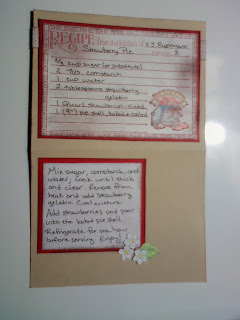 RECIPE from the kitchen of V.J. 
Strawberry Pie serves 8
3/4 cup sugar (or substitute)
2 Tbls. cornstarch
1 cup water
2 tablespoons strawberry
gelatin
1 Quart strawberries, sliced
1 (9") pie shell, baked & cooled
Mix sugar, cornstarch, and
water; cook until thick
and clear. Remove from
heat and add strawberry
gelatin. Cool mixture.
Add strawberries and pour
into the baked pie shell.
Refrigerate for one hour
before serving. Enjoy!